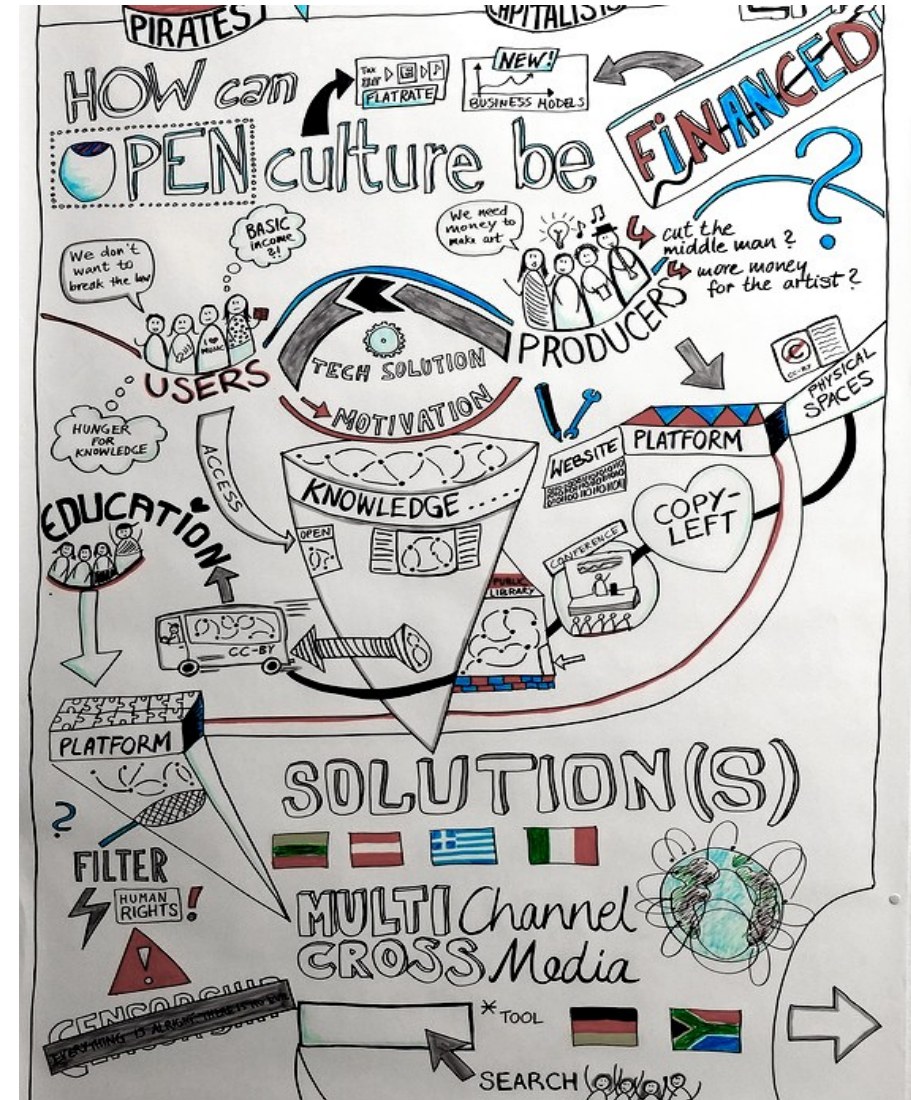 PIRATES
CAPITALISTS
HOW can
OPEN culture be
FINANCED
?
FLATRATE
NEW!
BUSINESS MODELS
We don't
want to
break the law
BASIC
income
?!
We need
money to
make art
cut the
middle man?
more money
for the artist?
I ♥
MUSIC
USERS
PRODUCERS
TECH SOLUTION
MOTIVATION
HUNGER
FOR
KNOWLEDGE
ACCESS
CC-BY
PHYSICAL
SPACES
PLATFORM
WEBSITE
KNOWLEDGE.....
COPY-
LEFT
EDUCATION
OPEN
CONFERENCE
PUBLIC
LIBRARY
CC-BY
PLATFORM
SOLUTION(S)
?
FILTER
HUMAN
RIGHTS!
!
MULTI Channel
CROSS Media
CENSORSHIP
EVERYTHING IS ALRIGHT THERE IS NO
*TOOL
SEARCH